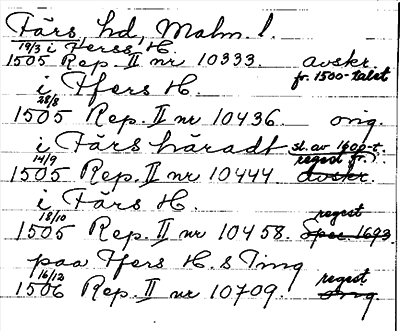 Färs, hd, Malm. l.
19/3 i Ferss H.
1505 Rep. II nr 10333. avskr.
fr. 1500-talet
i Ffers H.
28/8
1505 Rep. II nr 10436. orig.
i Färs häradt sl. av 1600-t.
14/9 regest fr.
1505 Rep. II nr 10444. avskr.
i Färs H.
18/10 regest
1505 Rep. II nr 10458. Spec 1693
paa Ffers H. s Ting
16/12 regest
1506 Rep. II nr 10709. orig.